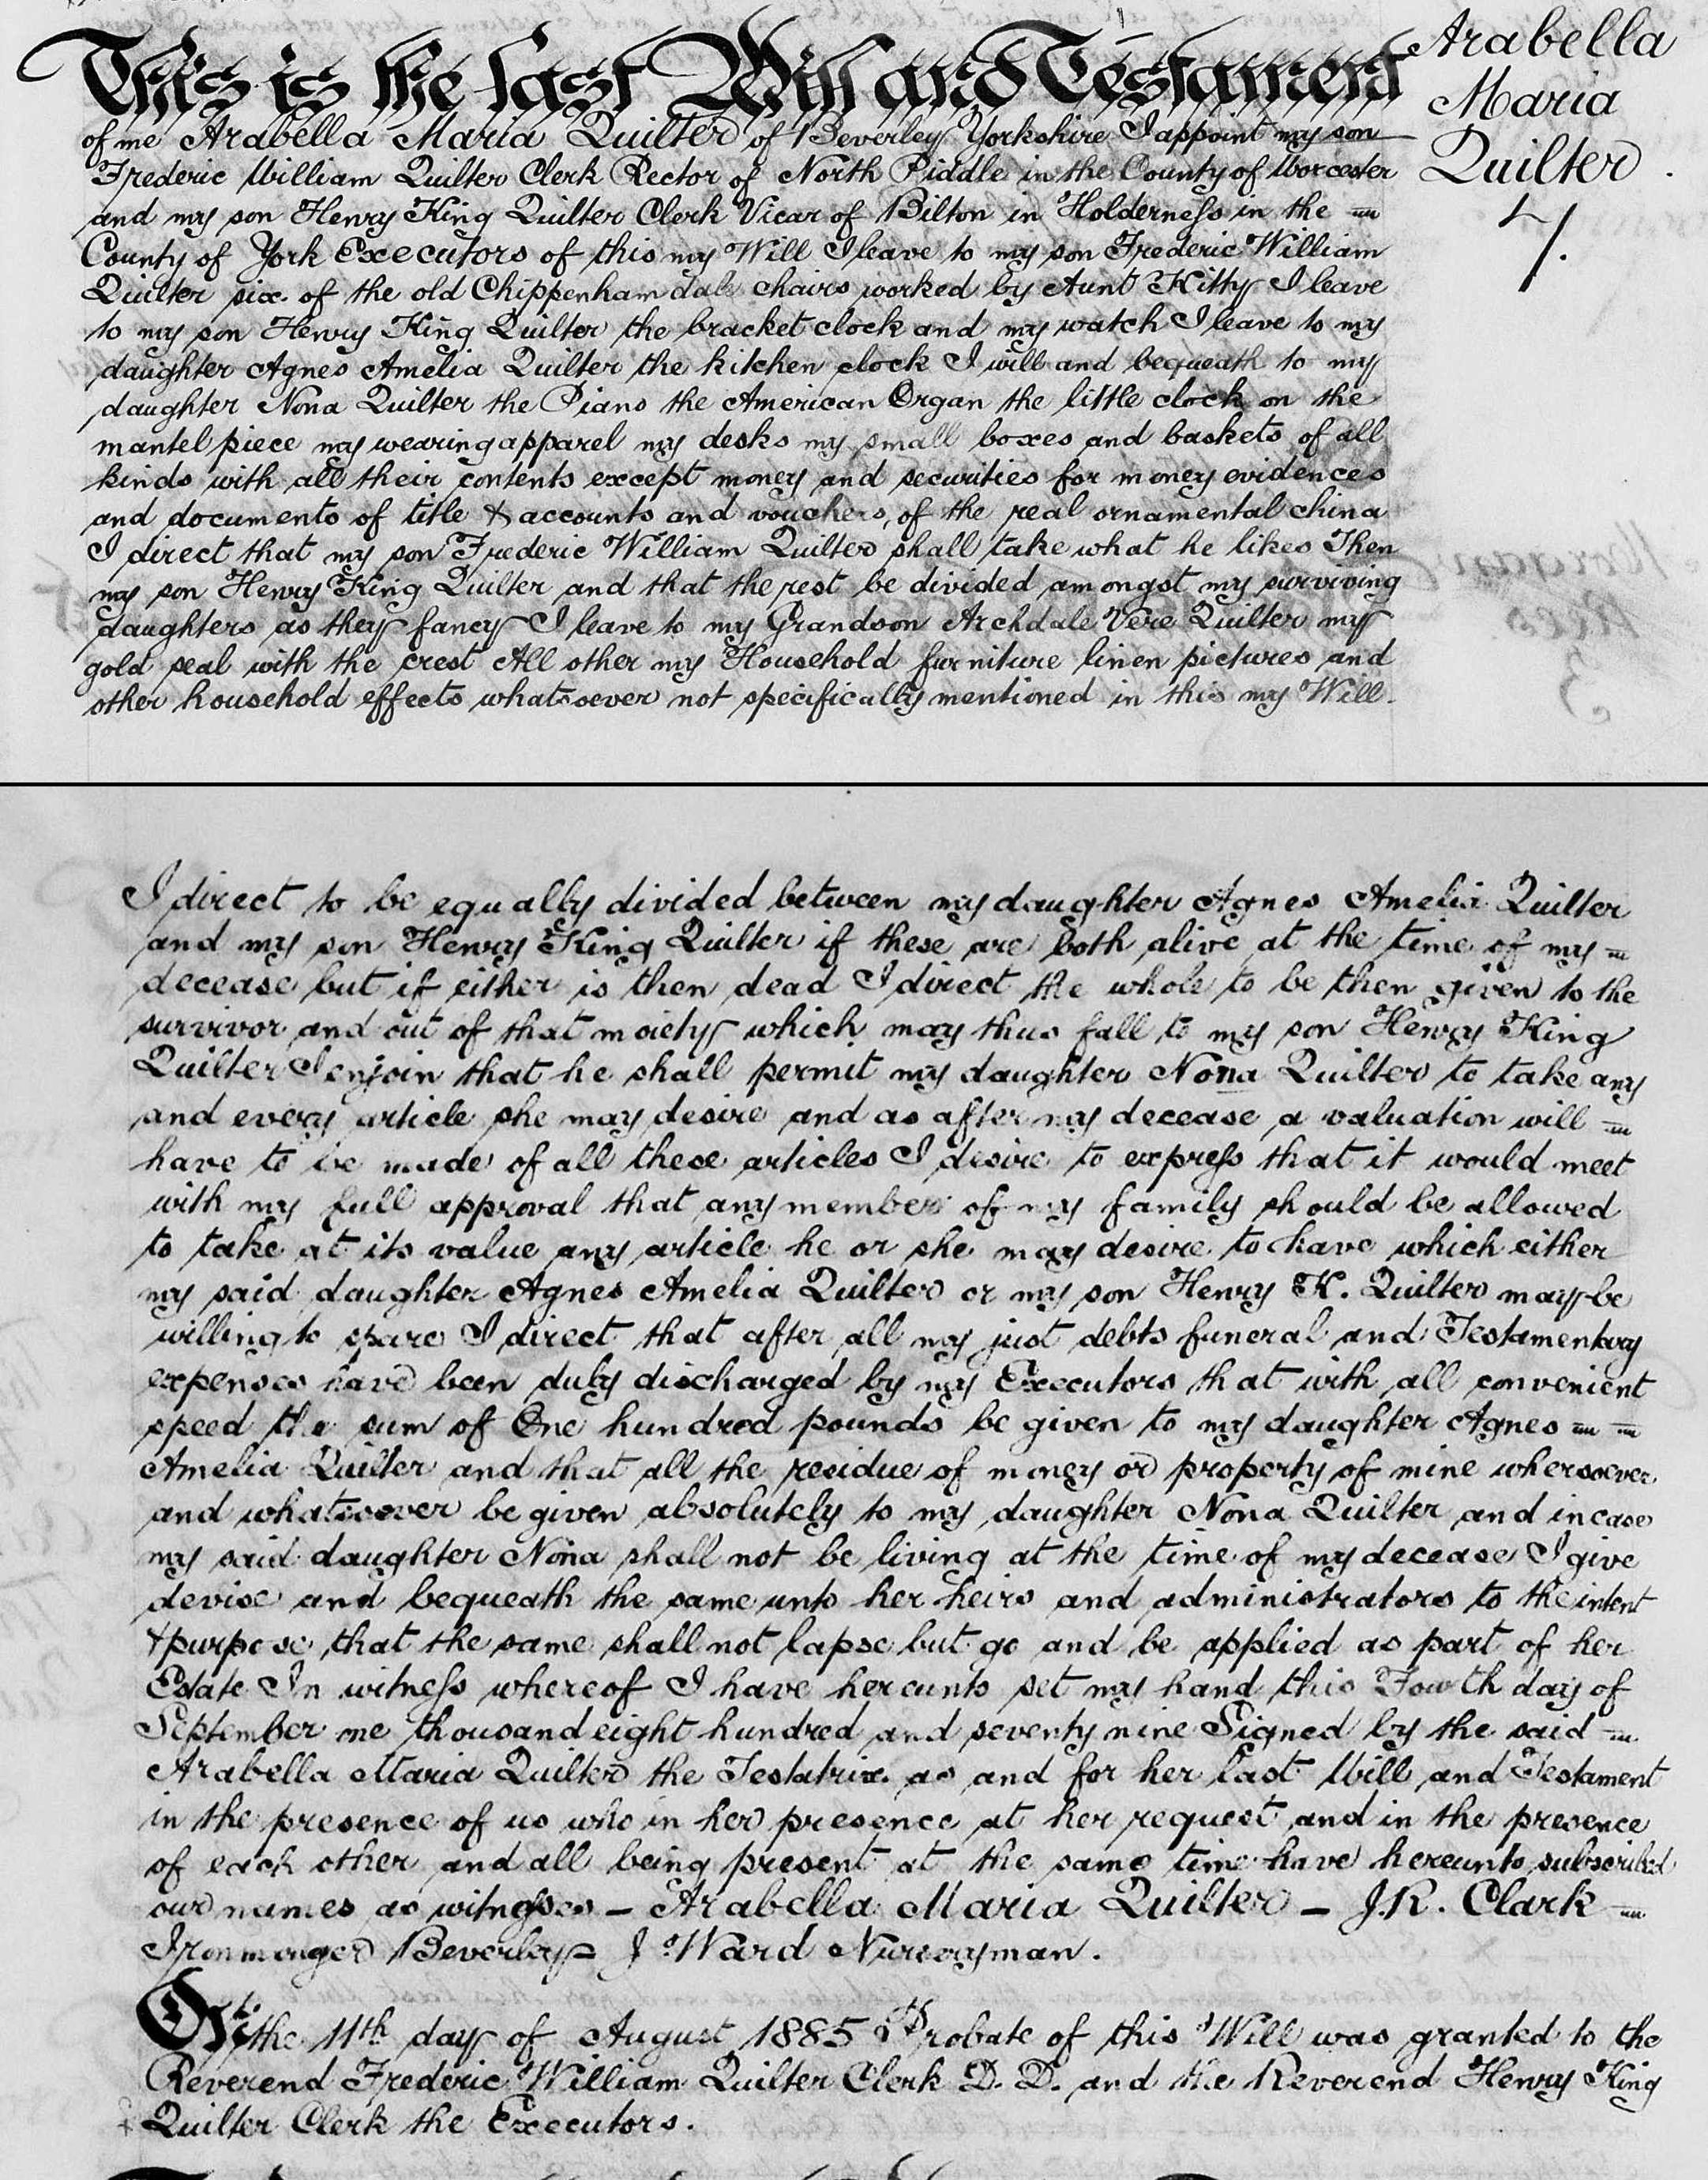 This is the last Will and Testament
of me Arabella Maria Quilter of Beverley Yorkshire I appoint my son
Frederic William Quilter Clerk Rector of North Piddle in the County of Worcester
and my son Henry King Quilter Clerk Vicar of Bilton in Holderness in the
County of York Executors of this my Will I leave to my son Frederic William
Quilter six of the old Chippenham dale chairs worked by Aunt Kitty I leave
to my son Henry King Quilter the bracket clock and my watch I leave to my
daughter Agnes Amelia Quilter the kitchen clock I will and bequeath to my
daughter Nona Quilter the Piano the American Organ the little clock on the
mantel piece my wearing apparel my desks my small boxes and baskets of all
kinds with all their contents except money and securities for money evidences
and documents of title & accounts and vouchers, of the real ornamental china
I direct that my son Frederic William Quilter shall take what he likes Then
my son Henry King Quilter and that the rest be divided amongst my surviving
daughters as they fancy I leave to my Grandson Archdale Vere Quilter my
gold seal with the crest All other my Household furniture linen pictures and
other household effects whatsoever not specifically mentioned in this my Will.
Arabella
Maria
Quilter
7.
I direct to be equally divided between my daughter Agnes Amelia Quilter
and my son Henry King Quilter if these are both alive at the time of my
decease but if either is then dead I direct the whole to be then given to the
survivor and out of that moiety which may thus fall to my son Henry King
Quilter I enjoin that he shall permit my daughter Nona Quilter to take any
and every article she may desire and as after my decease a valuation will
have to be made of all these articles I desire to express that it would meet
with my full approval that any member of my family should be allowed
to take at its value any article he or she may desire to have which either
my said daughter Agnes Amelia Quilter or my son Henry K. Quilter may be
willing to spare I direct that after all my just debts funeral and Testamentary
expenses have been duly discharged by my Executors that with all convenient
speed the sum of One hundred pounds be given to my daughter Agnes
Amelia Quilter and that all the residue of money or property of mine wheresoever
and whatsoever be given absolutely to my daughter Nona Quilter and in case
my said daughter Nona shall not be living at the time of my decease I give
devise and bequeath the same unto her heirs and administrators to the intent
& purpose that the same shall not lapse but go and be applied as part of her
Estate In witness whereof I have hereunto set my hand this Fourth day of
September one thousand eight hundred and seventy nine Signed by the said
Arabella Maria Quilter the Testatrix as and for her last Will and Testament
in the presence of us who in her presence at her request and in the presence
of each other and all being present at the same time have hereunto subscribed
our names as witnesses – Arabella Maria Quilter – J. R. Clark
Ironmonger Beverley J Ward Nurseryman.
On the 11th day of August 1885 Probate of this Will was granted to the
Reverend Frederic William Quilter Clerk D. D. and the Reverend Henry King
Quilter Clerk the Executors.